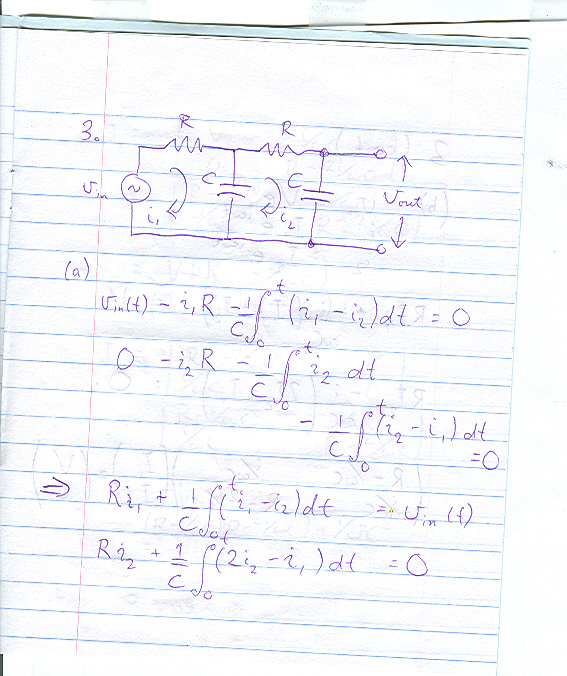 3.
R R
C C
v_in i_1 i_2 V_out
(a)
v_in(t) - i_1 R - 1/C ∫_0^t (i_1 - i_2) dt = 0
0 - i_2 R - 1/C ∫_0^t i_2 dt
- 1/C ∫_0^t (i_2 - i_1) dt
= 0
⇒ R i_1 + 1/C ∫_0^t (i_1 - i_2) dt = v_in(t)
R i_2 + 1/C ∫_0^t (2i_2 - i_1) dt = 0